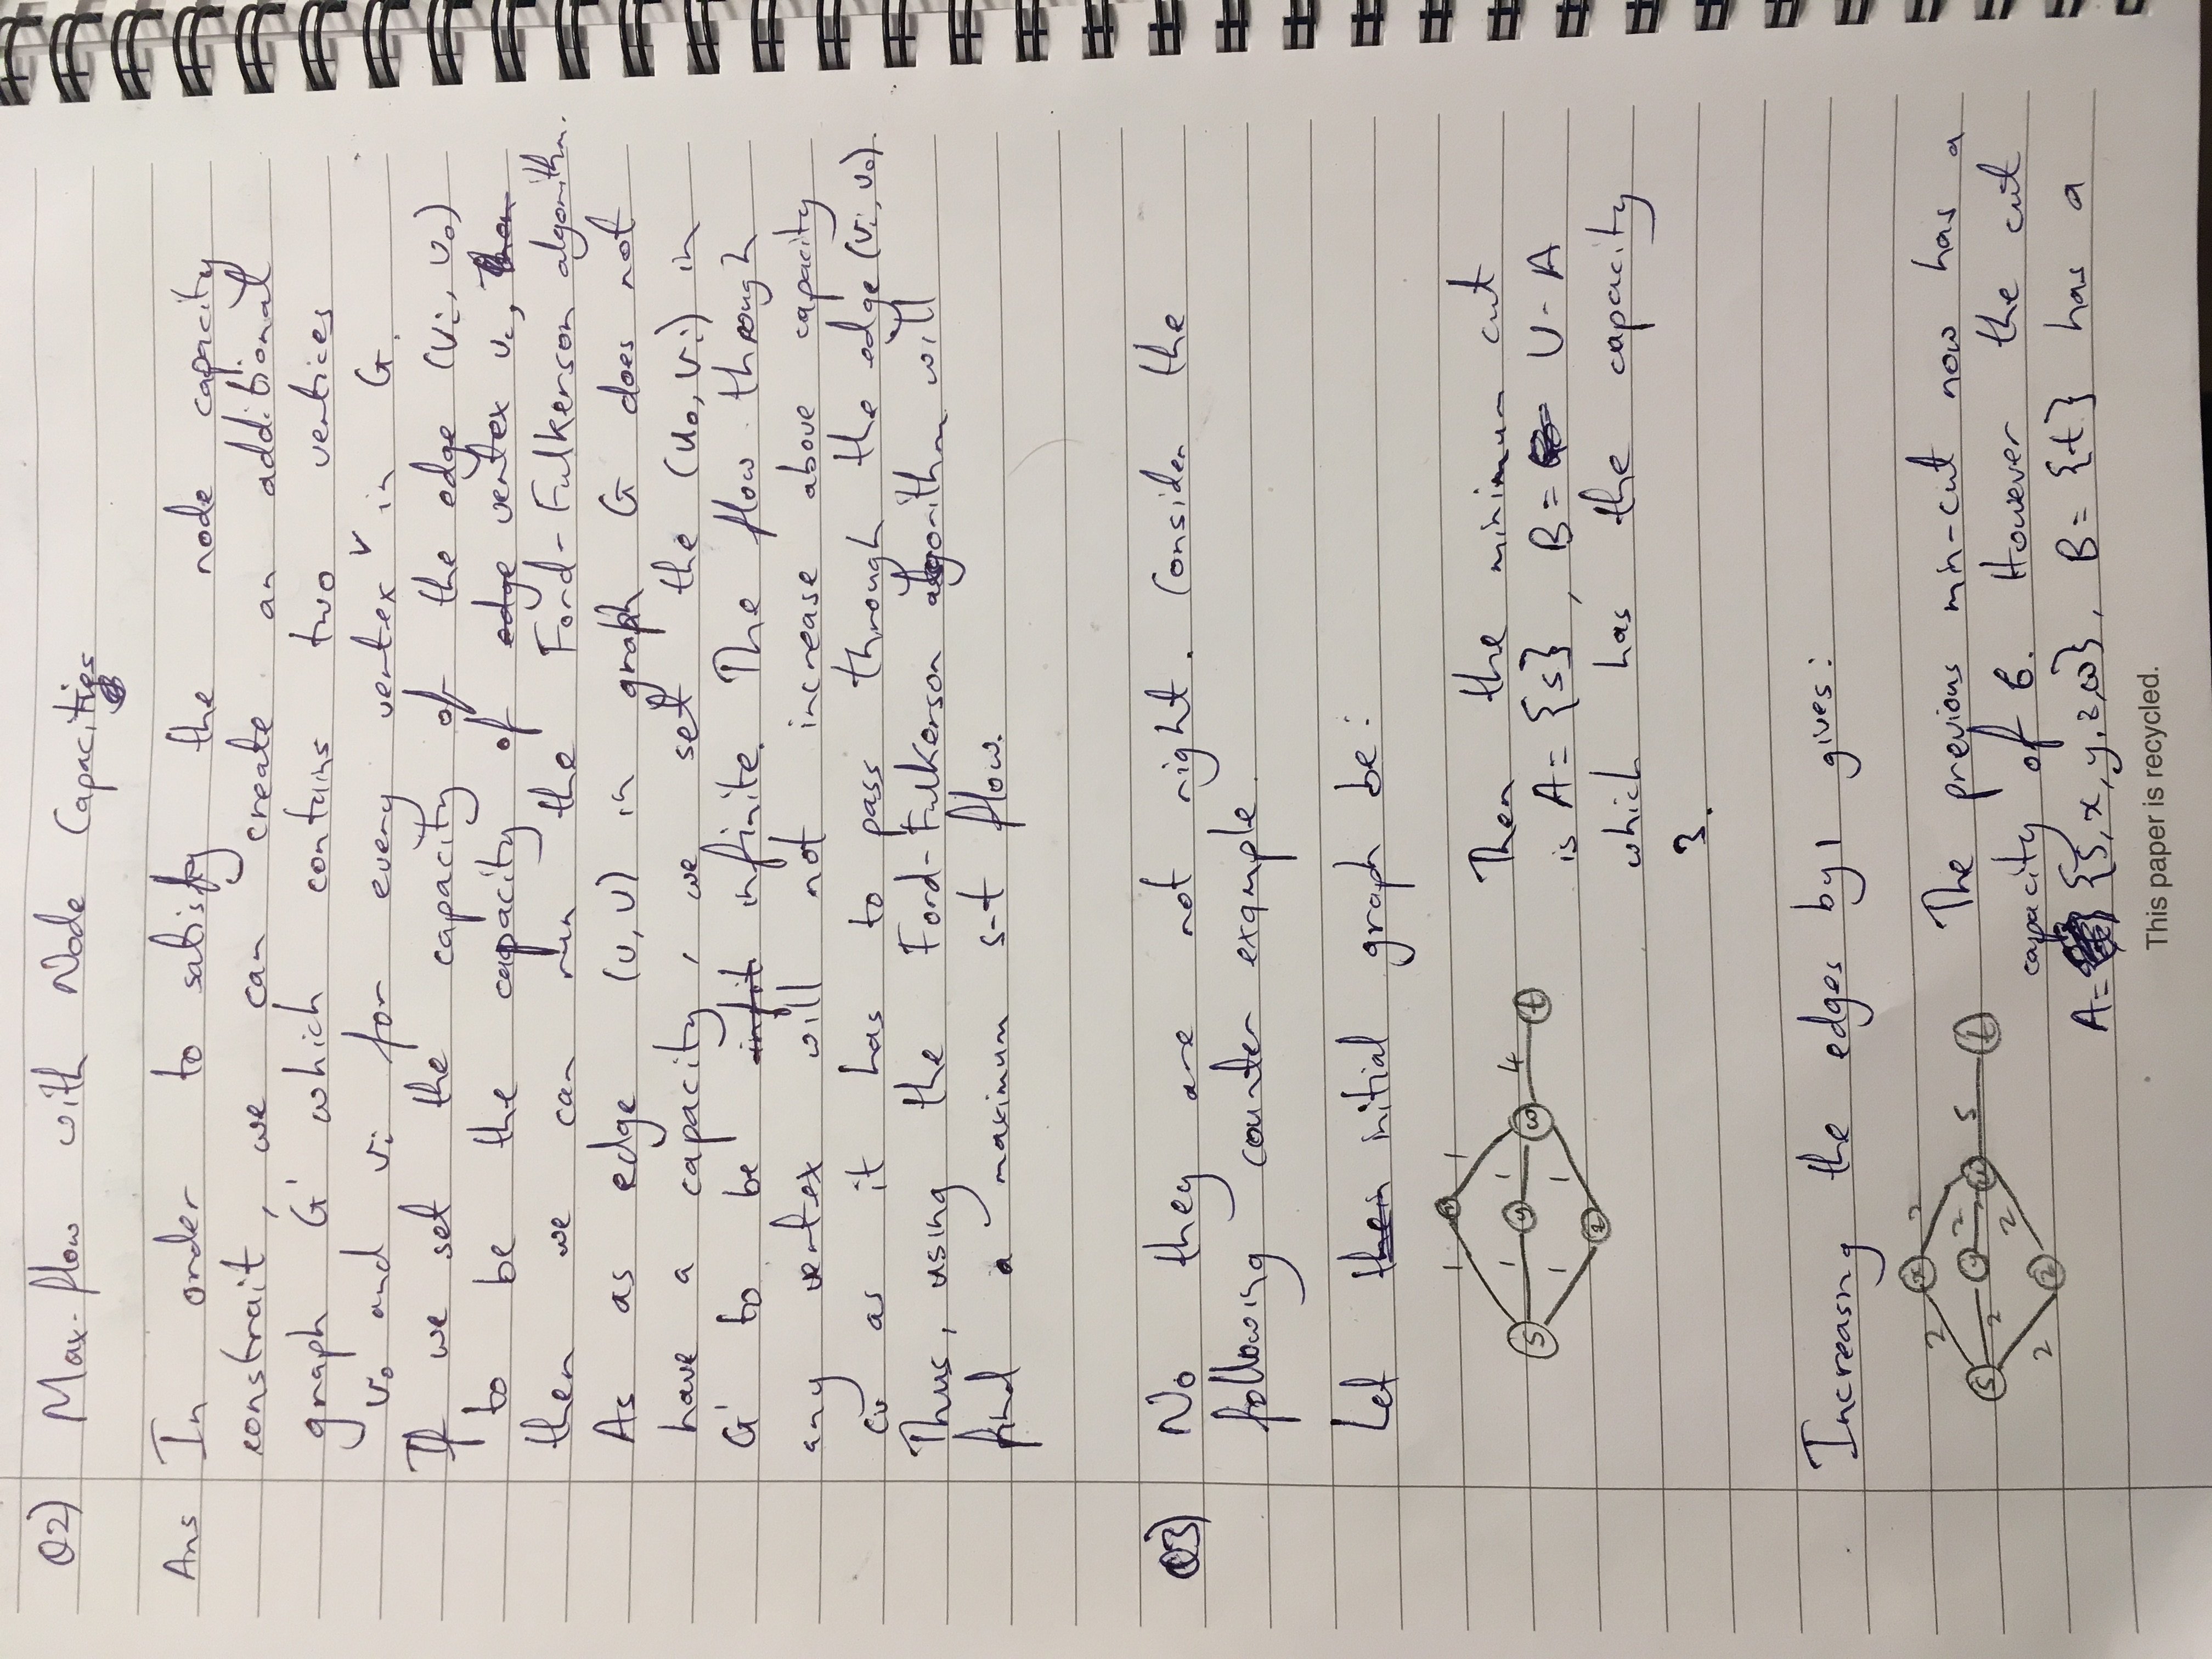 Q2) Max-flow with Node Capacities
Ans In order to satisfy the node capacity
constrait, we can create an additional
graph G' which contains two vertices
vo and vi for every vertex v in G.
If we set the capacity of the edge (vi, vo)
to be the capacity of edge vertex vc, then
then we can run the Ford-Fulkerson algorithm.
As as edge (u, v) in graph G does not
have a capacity, we set the (uo, vi) in
G' to be infinite. The flow through
any vertex will not increase above capacity
cv as it has to pass through the edge (vi, vo).
Thus, using the Ford-Fulkerson algorithm will
find a maximum s-t flow.
Q3) No they are not right. Consider the
following counter example.
Let initial graph be:
1 1
s 1 y 1 w 4 t
1 z 1
Then the minimum cut
is A= {s}, B= V-A
which has the capacity
3.
Increasng the edges by 1 gives:
2 x 2
s 2 y 2 w 5 t
2 z 2
The previous min-cut now has a
capacity of 6. However the cut
A= {s, x, y, z, w}, B= {t} has a
This paper is recycled.